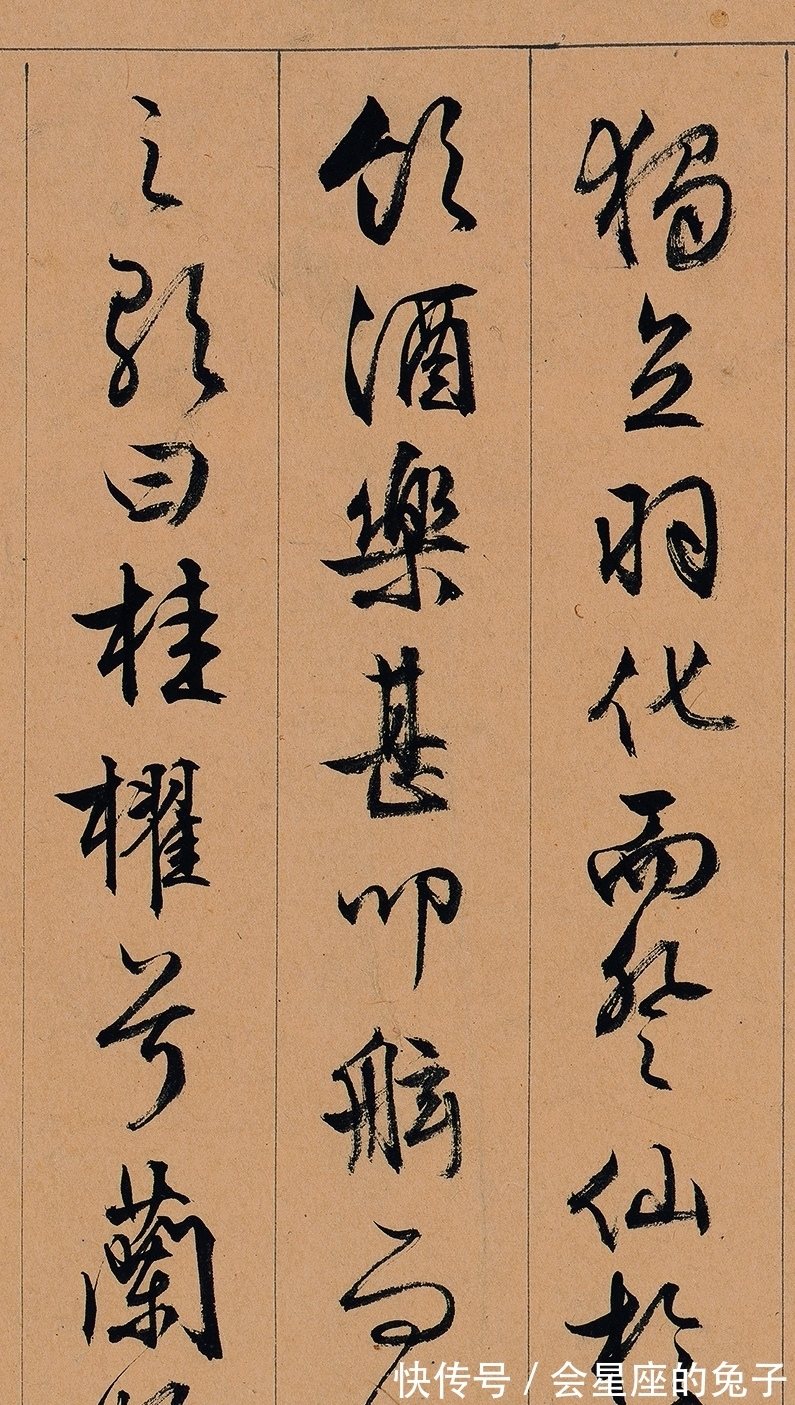 獨立羽化而登仙於
飲酒樂甚叩舷而
之歌曰桂櫂兮蘭
快传号 / 会星座的兔子